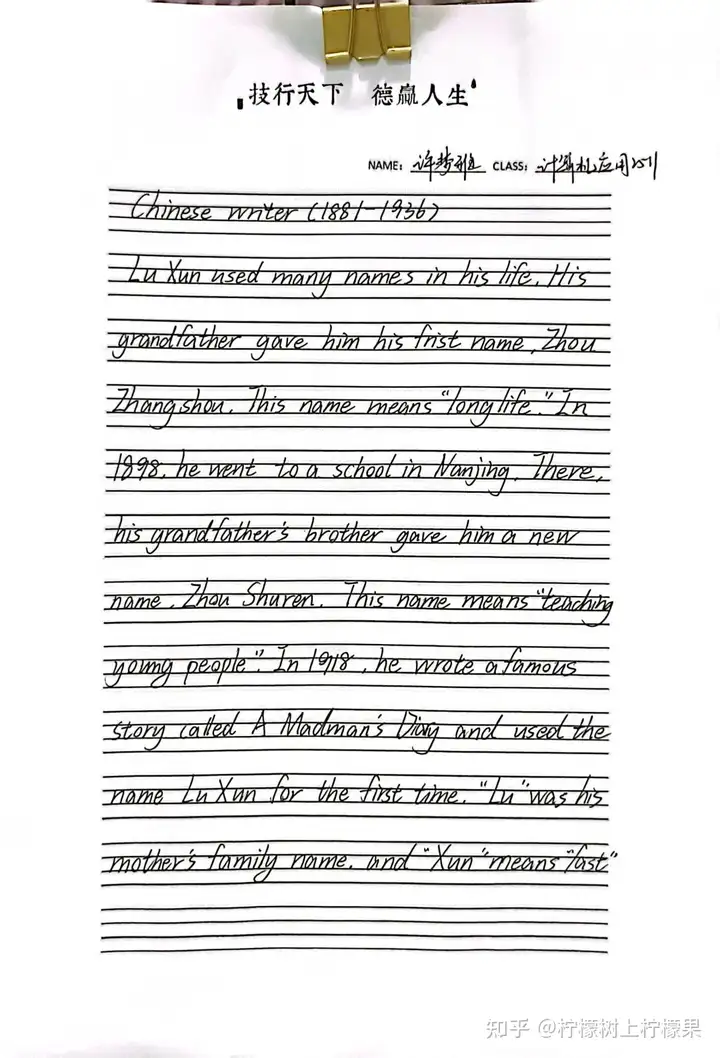 技行天下 德赢人生
NAME: 许梦雅 CLASS: 计算机应用
Chinese writer (1881-1936)
Lu Xun used many names in his life. His
grandfather gave him his frist name, Zhou
Zhangshou. This name means "long life." In
1898, he went to a school in Nanjing. There,
his grandfather's brother gave him a new
name, Zhou Shuren. This name means "teaching
young people". In 1918, he wrote a famous
story called A Madman's Diary and used the
name Lu Xun for the first time. "Lu" was his
mother's family name, and "Xun" means "fast"
知乎 @柠檬树上柠檬果